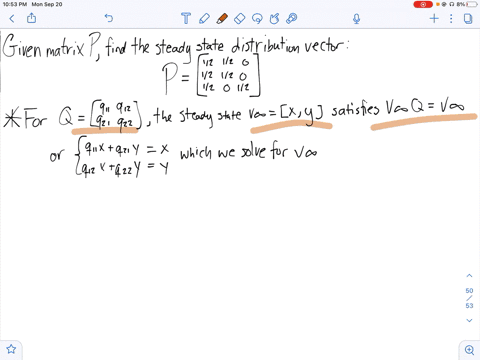 10:53 PM Mon Sep 20
8%
Given matrix P, find the steady state distribution vector:
P = [1/2 1/2 0
1/2 1/2 0
1/2 0 1/2]
*For Q = [q11 q12
q21 q22], the steady state v∞ = [x, y] satisfies v∞ Q = v∞
or { q11x + q21y = x
q12x + q22y = y which we solve for v∞
50
/
53